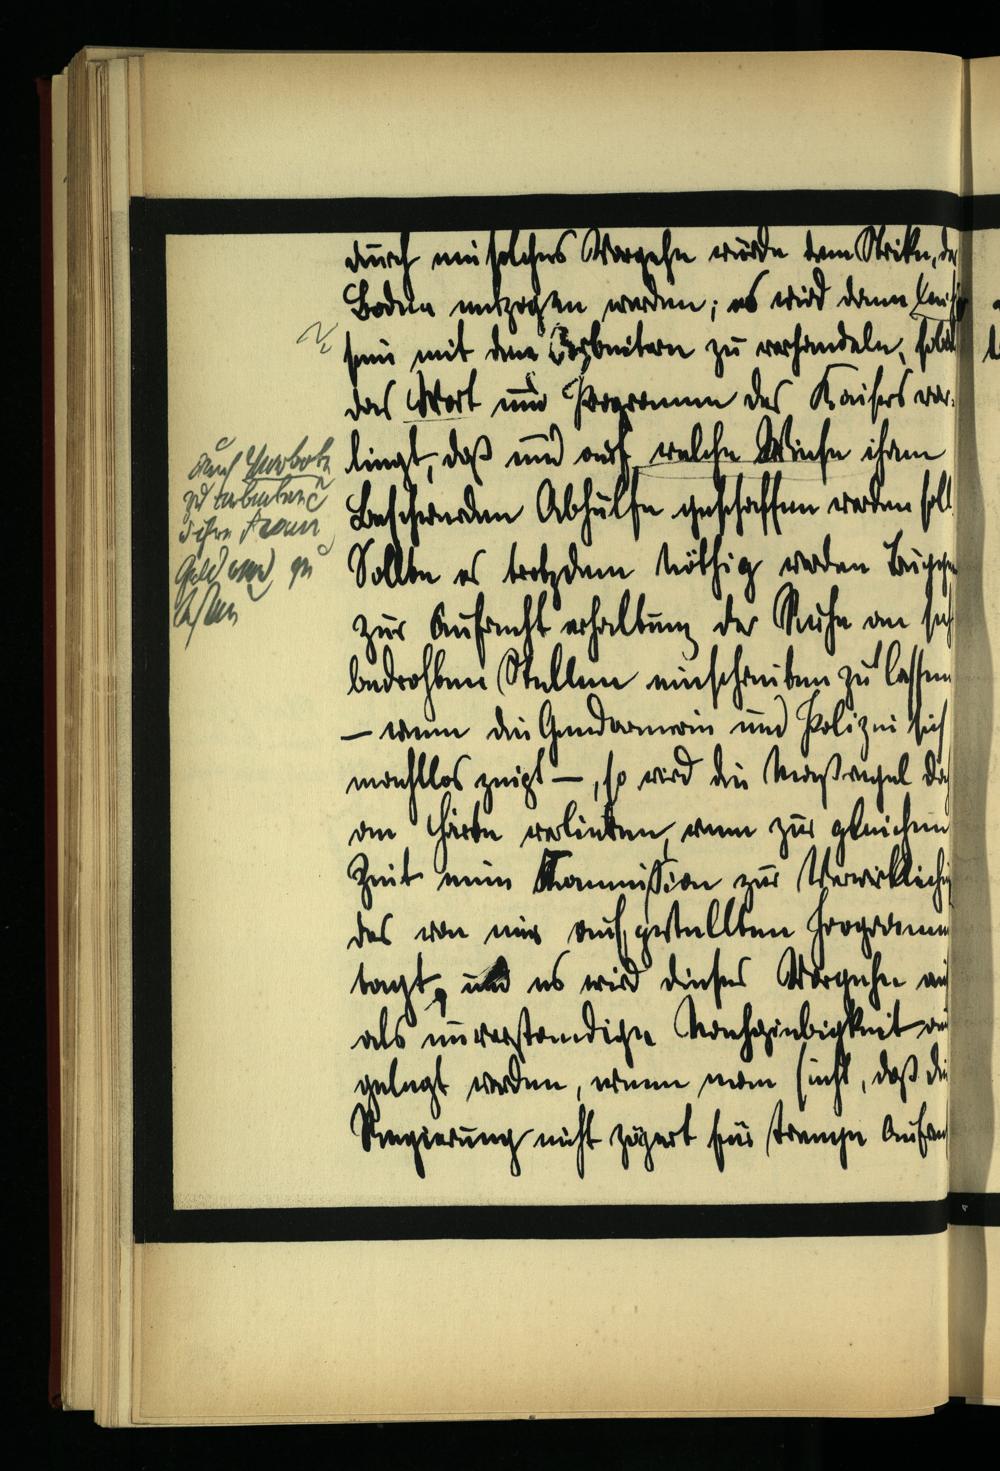 durch ein solches Vorgehn würde dem Strike, de
Boden entzogen werden; es wird dann
sein mit den Arbeitern zu verhandeln,
das Wort und Programm des Kaisers vor-
liegt, daß und auf welche Weise ihren
Beschwerden Abhülfe geschaffen werden soll
Sollte es trotzdem nöthig werden Trupp
zur Aufrecht erhaltung der Ruhe an
bedrohten Stellen einschreiten zu lassen
— wenn die Gendarmerie und Polizei sich
machtlos zeigt —, so wird die Maßregel
an Härte verlieren, wenn zur gleichen
Zeit eine Kommission zur Verwirklich
des von mir aufgestellten Programm
tagt, und es wird dieses Vorgehn
als unverständige Nachgiebigkeit
gelegt werden, wenn man sieht, daß die
Regierung nicht zögert für strenge Aufre
auf Verbot
zu arbeiten
Geld und zu